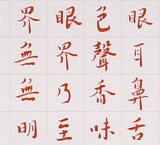 眼耳鼻舌
色聲香味
眼界乃至
界無無明